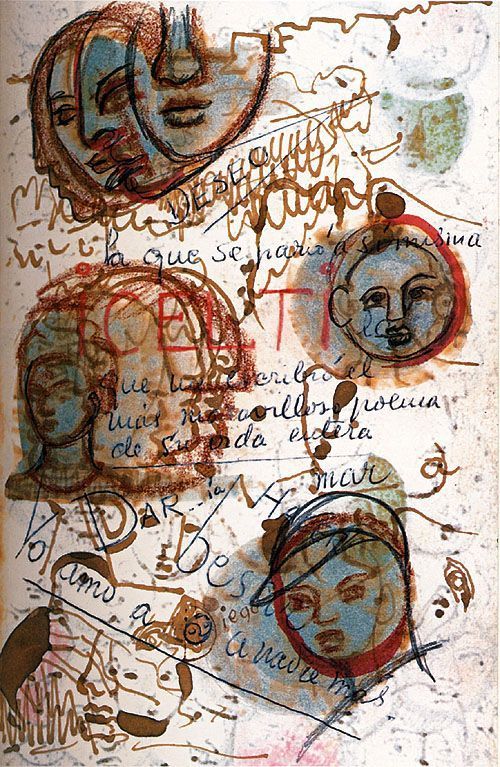 DESEO
la que se parió a símisma
que me escribió el
más maravilloso poema
de su vida entera
DAR..ía
mar
Yo
amo a
Diego
a nadie más.